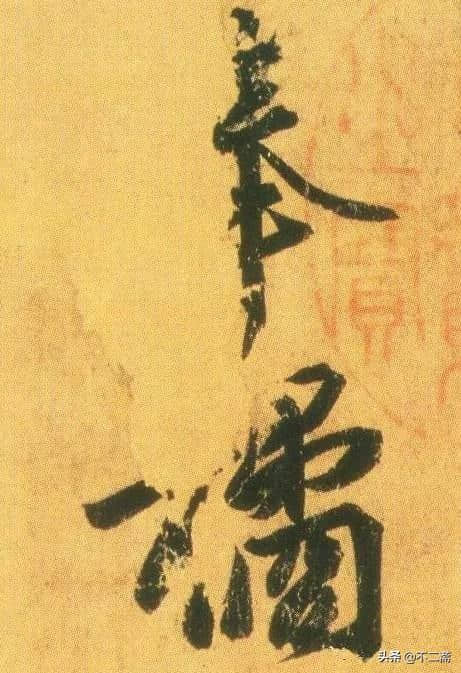 奉
橘
头条 @不二斋